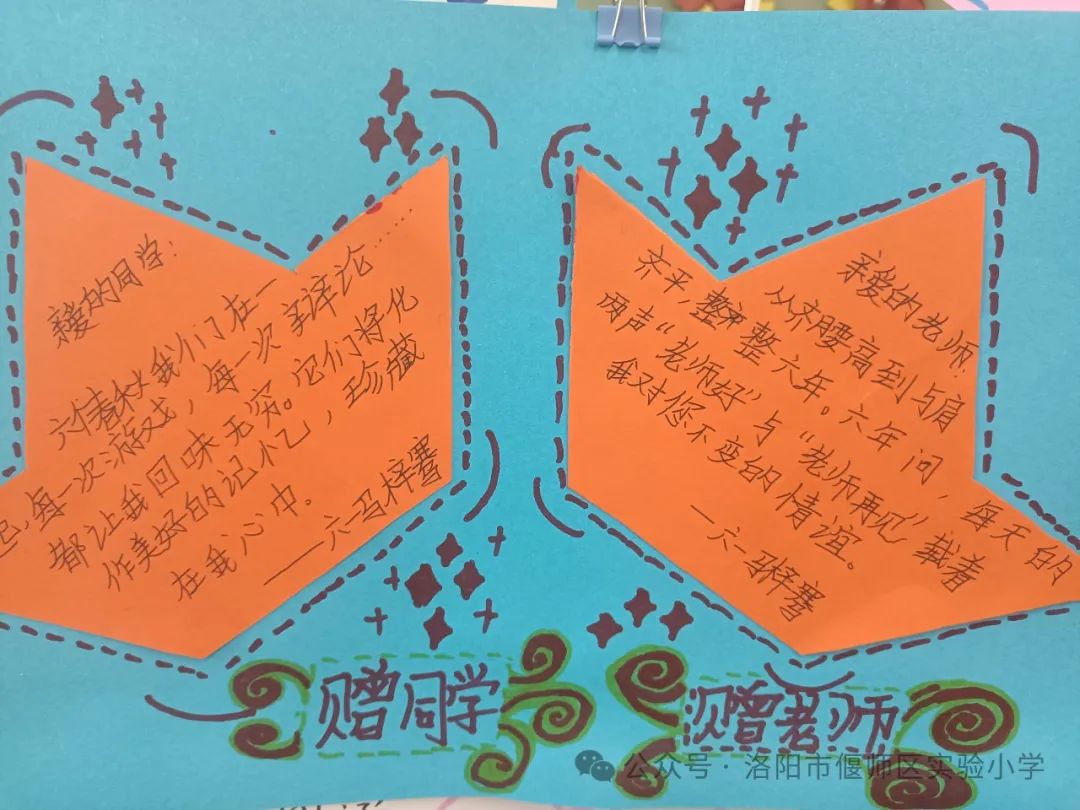 亲爱的同学:
六个春秋,我们在一
起,每一次游戏,每一次辩论……
都让我回味无穷。它们将化
作美好的记忆,珍藏
在我心中。
——六一马梓骞
亲爱的老师:
从齐腰高到与肩
齐平,整整六年。六年间,每天的
两声“老师好”与“老师再见”载着
我对您不变的情谊。
—六一马梓骞
赠同学
赠老师
公众号·洛阳市偃师区实验小学